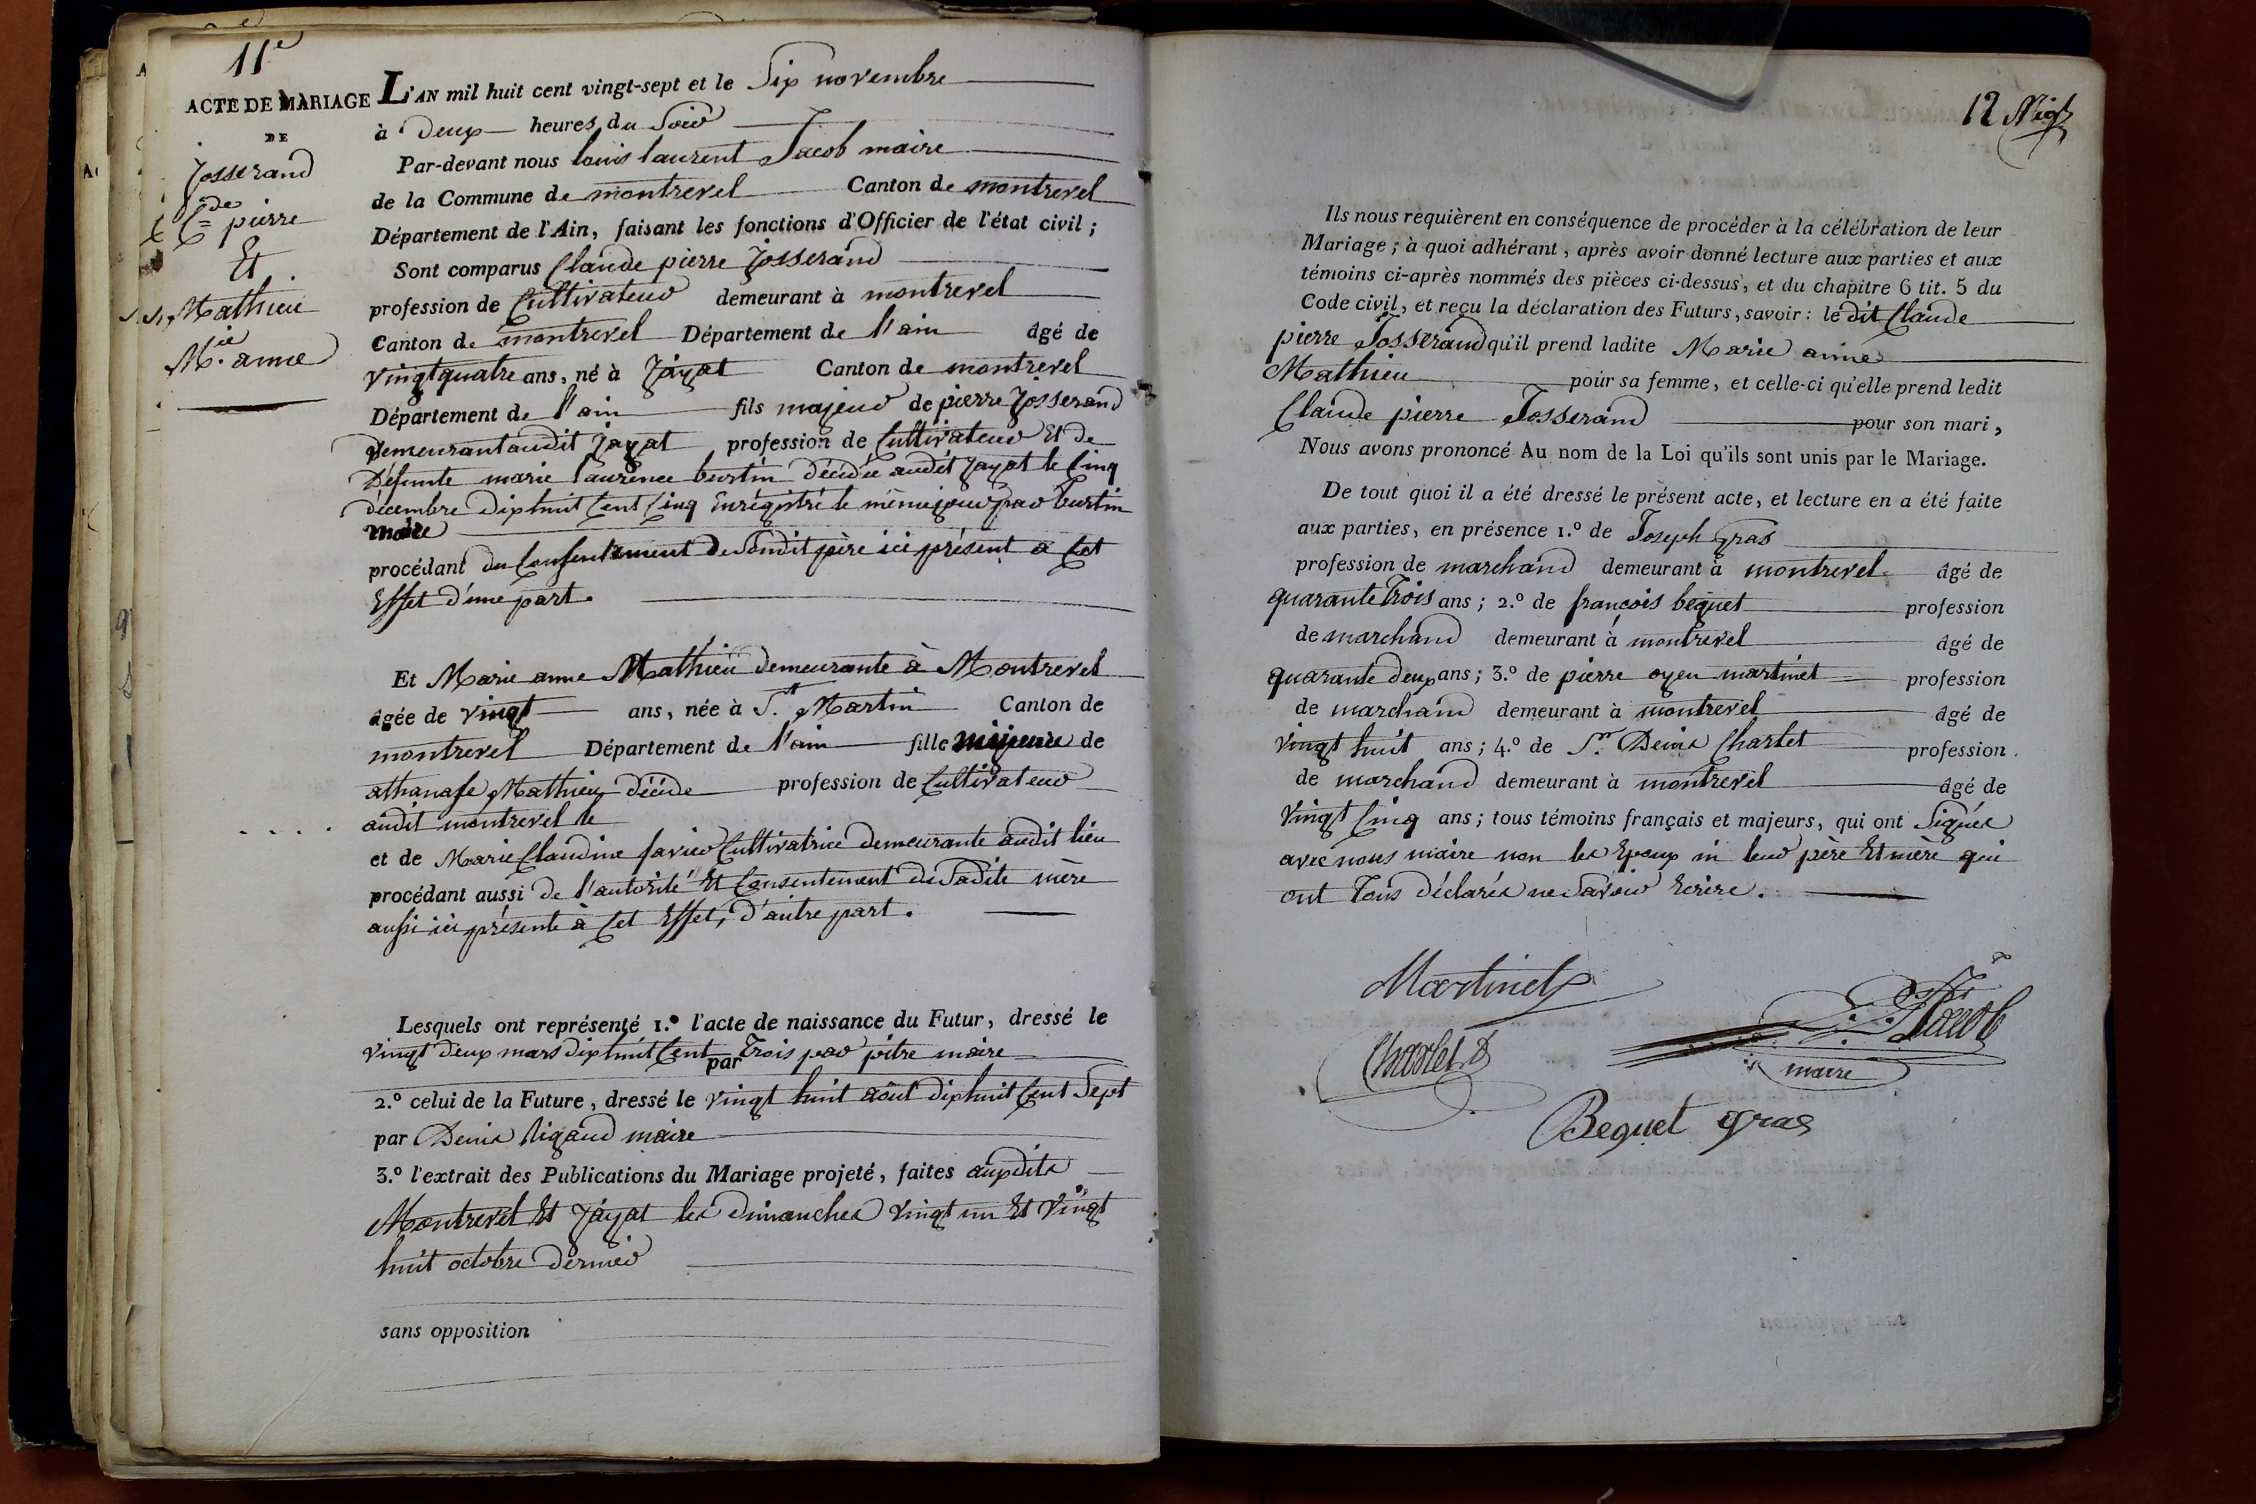 11e
ACTE DE MARIAGE
DE
Josserand
Cde pierre
Et
Mathieu
Mie anne
L'AN mil huit cent vingt-sept et le Six novembre
à deux heures du Soir
Par-devant nous louis laurent Jacob maire
de la Commune de montrevel Canton de montrevel
Département de l'Ain, faisant les fonctions d'Officier de l'état civil ;
Sont comparus Claude pierre Josserand
profession de Cultivateur demeurant à montrevel
Canton de montrevel Département de l'ain âgé de
vingt quatre ans, né à Jayat Canton de montrevel
Département de l'ain fils majeur de pierre Josserand
demeurant audit Jayat profession de Cultivateur Et de
Défunte marie laurence burtin décédée audit Jayat le Cinq
décembre dixhuit Cent Cinq Enregistré le même jour par burtin
maire
procédant du Consentement de Sondit père ici présent a Cet
Effet d'une part.
Et Marie anne Mathieu demeurante à Montrevel
âgée de vingt ans, née à St. Martin Canton de
montrevel Département de l'ain fille mineure de
athanase Mathieu décédé profession de Cultivateur
audit montrevel le
et de Marie Claudine favier Cultivatrice demeurante audit lieu
procédant aussi de l'autorité Et Consentement de Sadite mère
aussi ici présente à Cet Effet, d'autre part.
Lesquels ont représenté 1.º l'acte de naissance du Futur, dressé le
vingt deux mars dixhuit Cent Trois par pitre maire
par
2.º celui de la Future, dressé le vingt huit août dixhuit Cent Sept
par Denis Rigaud maire
3.º l'extrait des Publications du Mariage projeté, faites auxdits
Montrevel Et Jayat les dimanches vingt un Et vingt
huit octobre dernier
sans opposition
12
Ils nous requièrent en conséquence de procéder à la célébration de leur
Mariage ; à quoi adhérant, après avoir donné lecture aux parties et aux
témoins ci-après nommés des pièces ci-dessus, et du chapitre 6 tit. 5 du
Code civil, et reçu la déclaration des Futurs, savoir : le dit Claude
pierre Josserand qu'il prend ladite Marie anne
Mathieu pour sa femme, et celle-ci qu'elle prend ledit
Claude pierre Josserand pour son mari,
Nous avons prononcé Au nom de la Loi qu'ils sont unis par le Mariage.
De tout quoi il a été dressé le présent acte, et lecture en a été faite
aux parties, en présence 1.º de Joseph gras
profession de marchand demeurant à montrevel âgé de
quarante Trois ans ; 2.º de françois bequet profession
de marchand demeurant à montrevel âgé de
quarante deux ans ; 3.º de pierre oyen martinet profession
de marchand demeurant à montrevel âgé de
vingt huit ans ; 4.º de Sr. Denis Charlet profession
de marchand demeurant à montrevel âgé de
vingt Cinq ans ; tous témoins français et majeurs, qui ont Signés
avec nous maire non les Epoux ni leur père Et mère qui
ont Tous déclarés ne Savoir Ecrire.
Martinet
Jacob
Charlet D
maire
Bequet gras